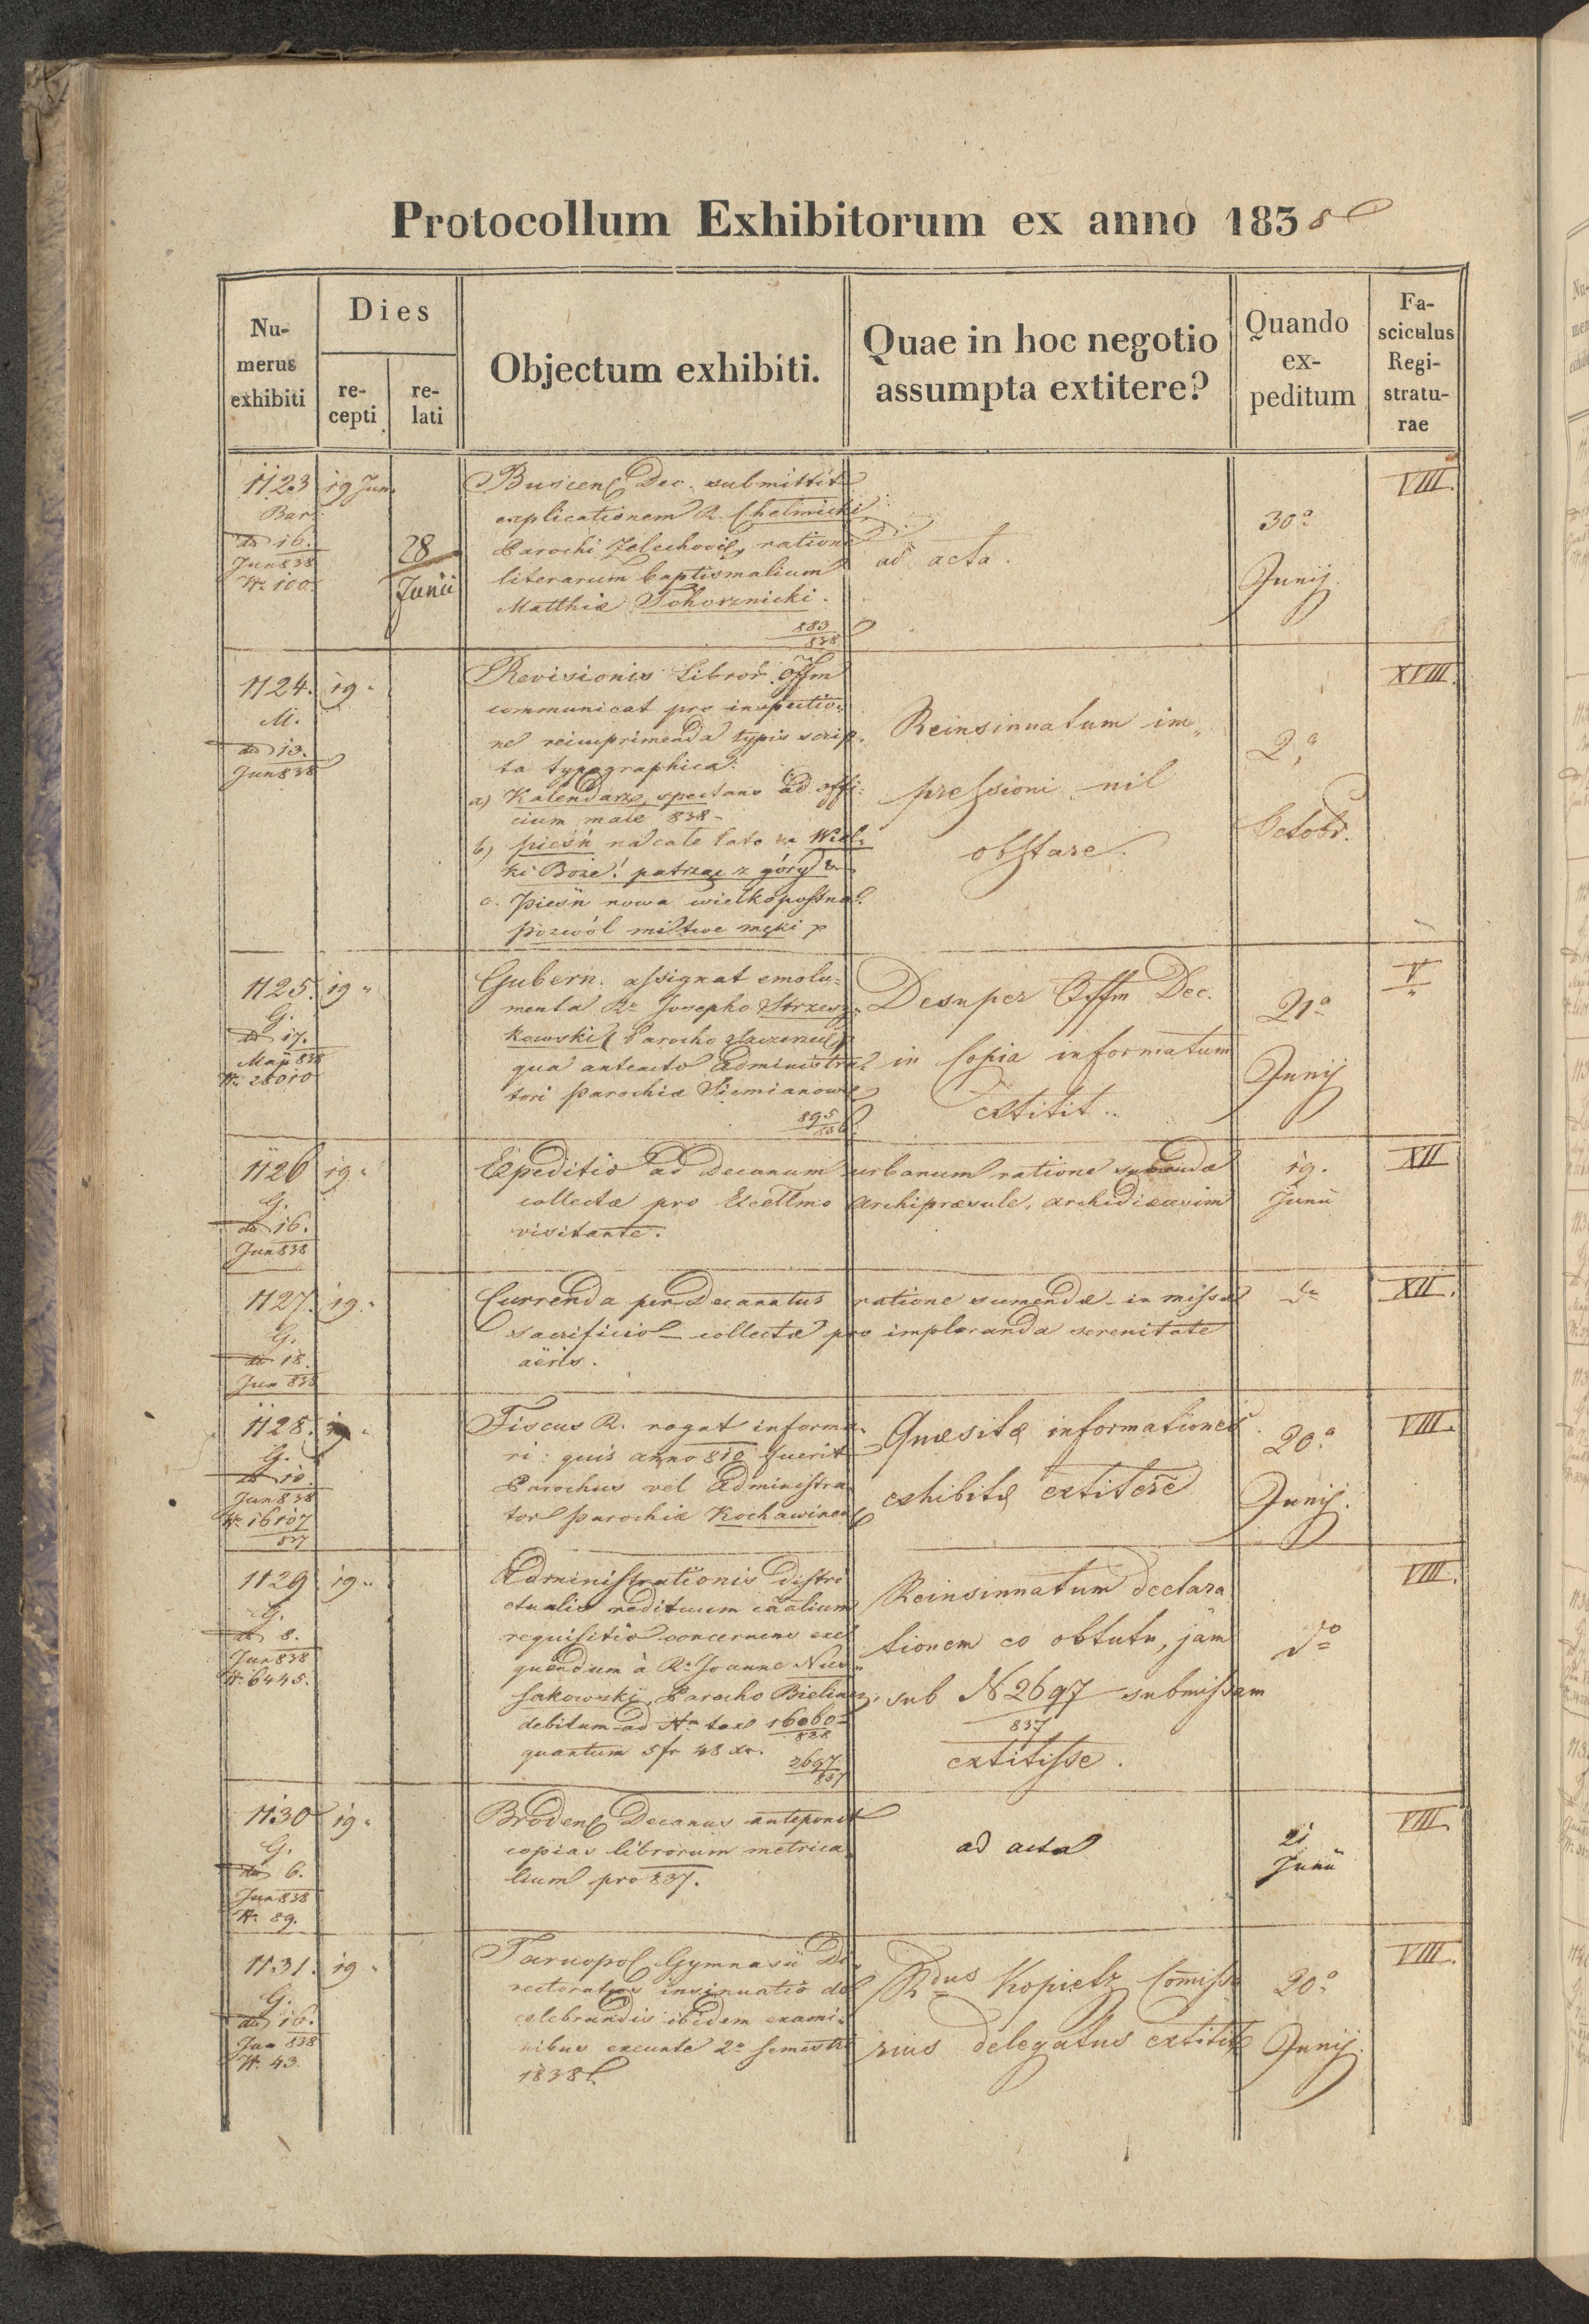 Protocollum Exhibitorum ex anno 1838
Numerus exhibiti
Dies
recepti
relati
Objectum exhibiti.
Quae in hoc negotio
assumpta extitere?
Quando
ex-
peditum
Fa-
sciculus
Regi-
stratu-
rae
1123
19 Jun.
Bar.
dto 16.
Jun 838
N: 100.
28
Junii
Buscens Dec. submittit
explicationem R. Chelmicki
Parochi Zelechovie, ratione
literarum baptismalium
Matthiæ Tchorznicki.
883
838
ad acta.
30a
Junij
VIII.
1124. 19.
M.
dto 13.
Jun 838
Revisionis Libror. Offm
communicat pro inspectio=
ne reimprimenda typis scrip=
ta typographica:
a) Kalendarze, spectans ad offi=
cium male 838-
b) pieśń na całe lato za Wiel=
ki Boże! patrząc z góry &
c. Pieśń nowa wielkopostna
pozwól mi twe męki p
Reinsinuatum im=
pressioni nil
obstare.
2a
Octobr.
XVIII.
1125. 19 "
G.
dto 17.
Maji 838
N: 28010
Gubern. assignat emolu=
menta Ro Josepho Strzesz=
kowski Parocho
qua anteacto Administra=
tori parochiæ Siemianowce
895
838
Desuper Offm Dec.
in Copia informatum
extitit..
21a
Junij
V
1126 19.
G.
dto 16.
Jun 838
Expeditio ad Decanum urbanum ratione sumendæ
collectæ pro Excellmo Archipræsule, archidiæcesim
visitante.
19.
Junii
XII
1127. 19.
G.
dto 18.
Jun 838
Currenda per Decanatus ratione sumendæ in missæ
sacrificio collectæ pro imploranda serenitate
aëris.
dto
XII.
1128. 19.
G.
dto 10.
Jun 838
N: 16107
837
Fiscus R. rogat informa=
ri: quis anno 810 fuerit
Parochus vel Administra=
tor parochiæ Kochawinens
Quæsitæ informationes
exhibitæ extitere
20a
Junij.
VIII.
1129 19.
G.
dto 8.
Jun 838
N: 6445.
Administrationis distri
ctualis redituum cãalium
requisitio concernens exe
quendum à Ro Joanne Nie=
sakowski, Parocho Bielinen,
debitum ad Nm tax 16060
838
quantum 5 fr 48 xr.
2697
837
Reinsinuatum declara
tionem eo obtutu, jam
sub N 2697 submissam
837
extitisse.
dto
VIII.
1130 19.
G.
dto 6.
Jun 838
N: 89.
Brodens Decanus anteponit
copias librorum metrica
lium pro 837.
ad acta
21
Junii
VIII.
1131. 19.
G.
dto 16.
Jun 838
N. 43.
Tarnopol Gymnasii Di=
rectoratus insinuatio de
celebrandis ibidem exami=
nibus exeunte 2o semestri
1838.
Rdus Kopietz Comissa
rius delegatus extitit
20a
Junij.
VIII.